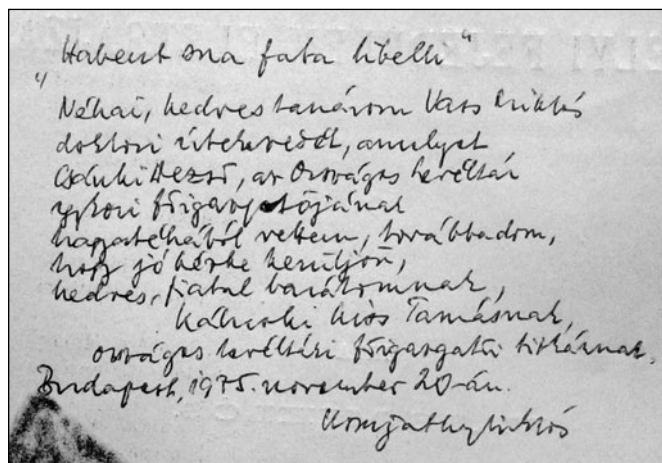 "Habent sua fata libelli"
Néhai, kedves tanárom Vass Miklós
doktori értekezését, amelyet
Csánki Dezső, az Országos Levéltár
egykori főigazgatójának
hagyatékából vettem, továbbadom,
hogy jó kézbe kerüljön,
kedves, fiatal barátomnak,
Kálnoki Kis Tamásnak,
országos levéltári főigazgatói titkárnak.
Budapest, 1975. november 20-án.
Komjáthy Miklós